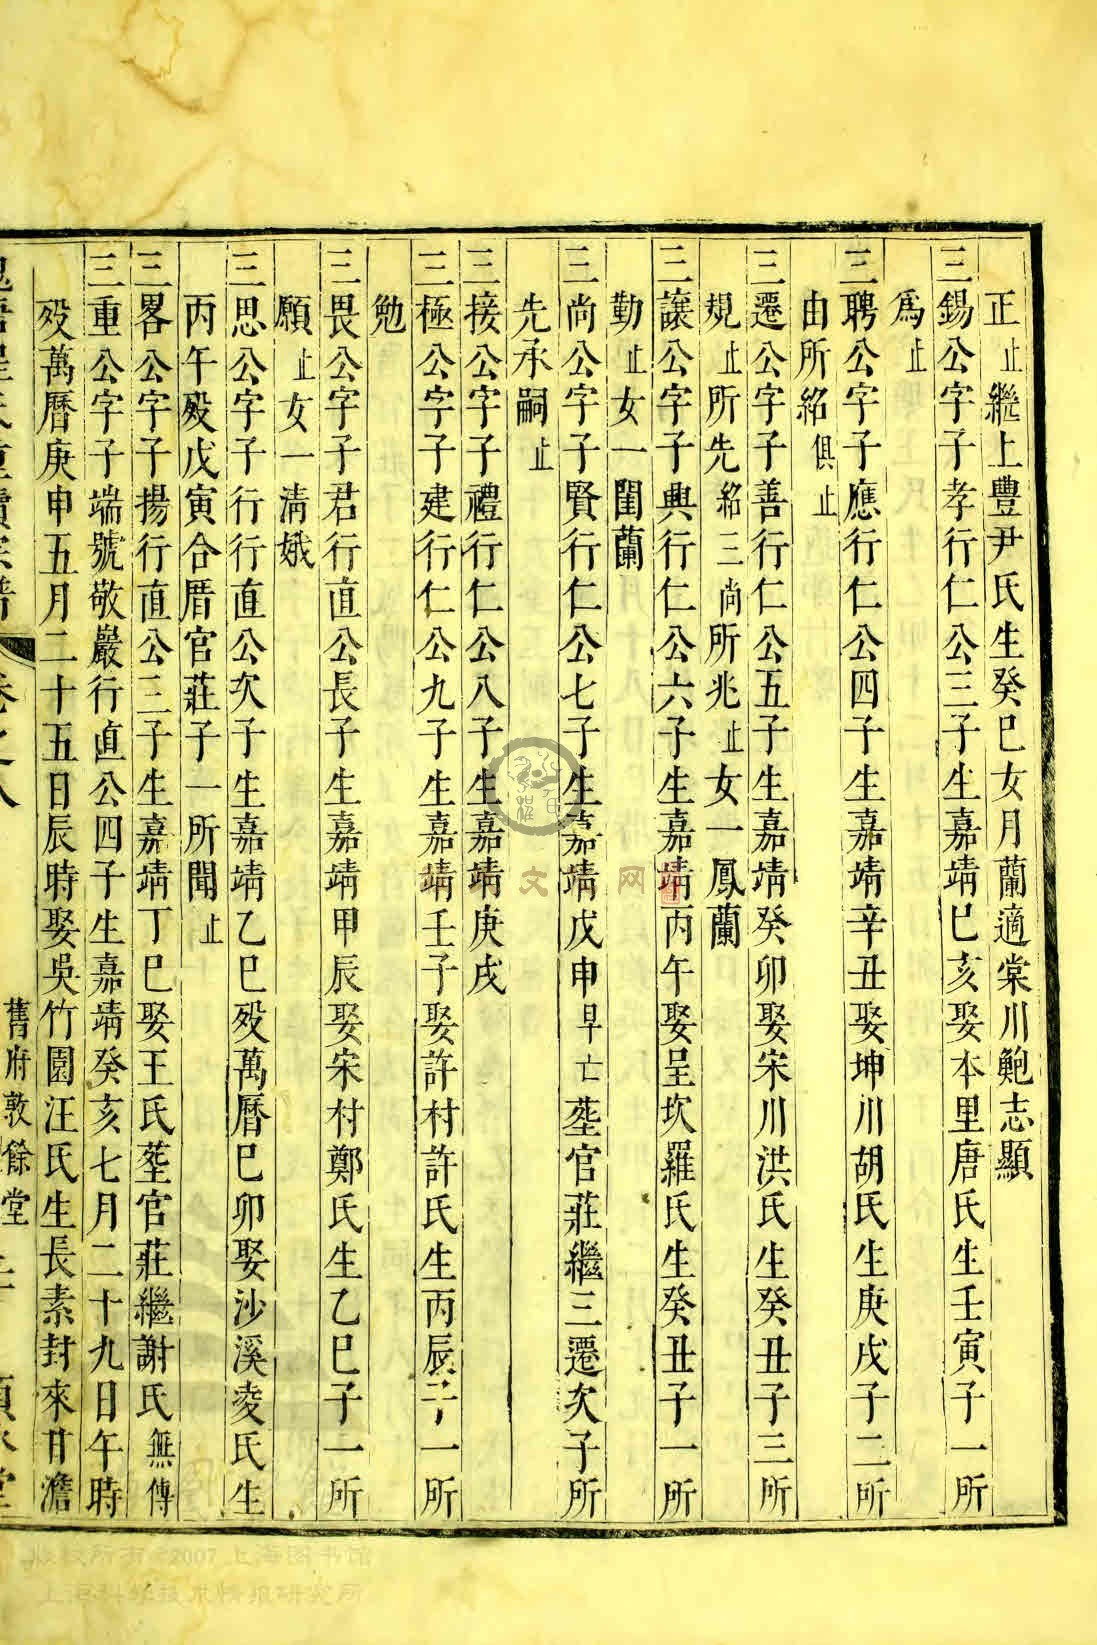 正止繼上豐尹氏生癸巳女月蘭適棠川鮑志顯
三錫公字子孝行仁公三子生嘉靖巳亥娶本里唐氏生壬寅子一所
為止
三聘公字子應行仁公四子生嘉靖辛丑娶坤川胡氏生庚戌子二所
由所紹俱止
三遷公字子善行仁公五子生嘉靖癸卯娶宋川洪氏生癸丑子三所
規止所先紹三尚所兆止女一鳳蘭
三讓公字子興行仁公六子生嘉靖丙午娶呈坎羅氏生癸丑子一所
勤止女一閨蘭
三尚公字子賢行仁公七子生嘉靖戊申早亡塟官莊繼三遷次子所
先承嗣止
三接公字子禮行仁公八子生嘉靖庚戌
三極公字子建行仁公九子生嘉靖壬子娶許村許氏生丙辰子一所
勉
三畏公字子君行直公長子生嘉靖甲辰娶宋村鄭氏生乙巳子一所
願止女一清娥
三思公字子行行直公次子生嘉靖乙巳歿萬曆巳卯娶沙溪凌氏生
丙午歿戊寅合厝官莊子一所聞止
三畧公字子揚行直公三子生嘉靖丁巳娶王氏塟官莊繼謝氏無傳
三重公字子端號敬巖行直公四子生嘉靖癸亥七月二十九日午時
歿萬曆庚申五月二十五日辰時娶吳竹園汪氏生長素封來甘澹
程氏重續宗譜 卷之八 舊府敦餘堂
文 网
版权所有 ©2007 上海图书馆
上海科学技术情报研究所